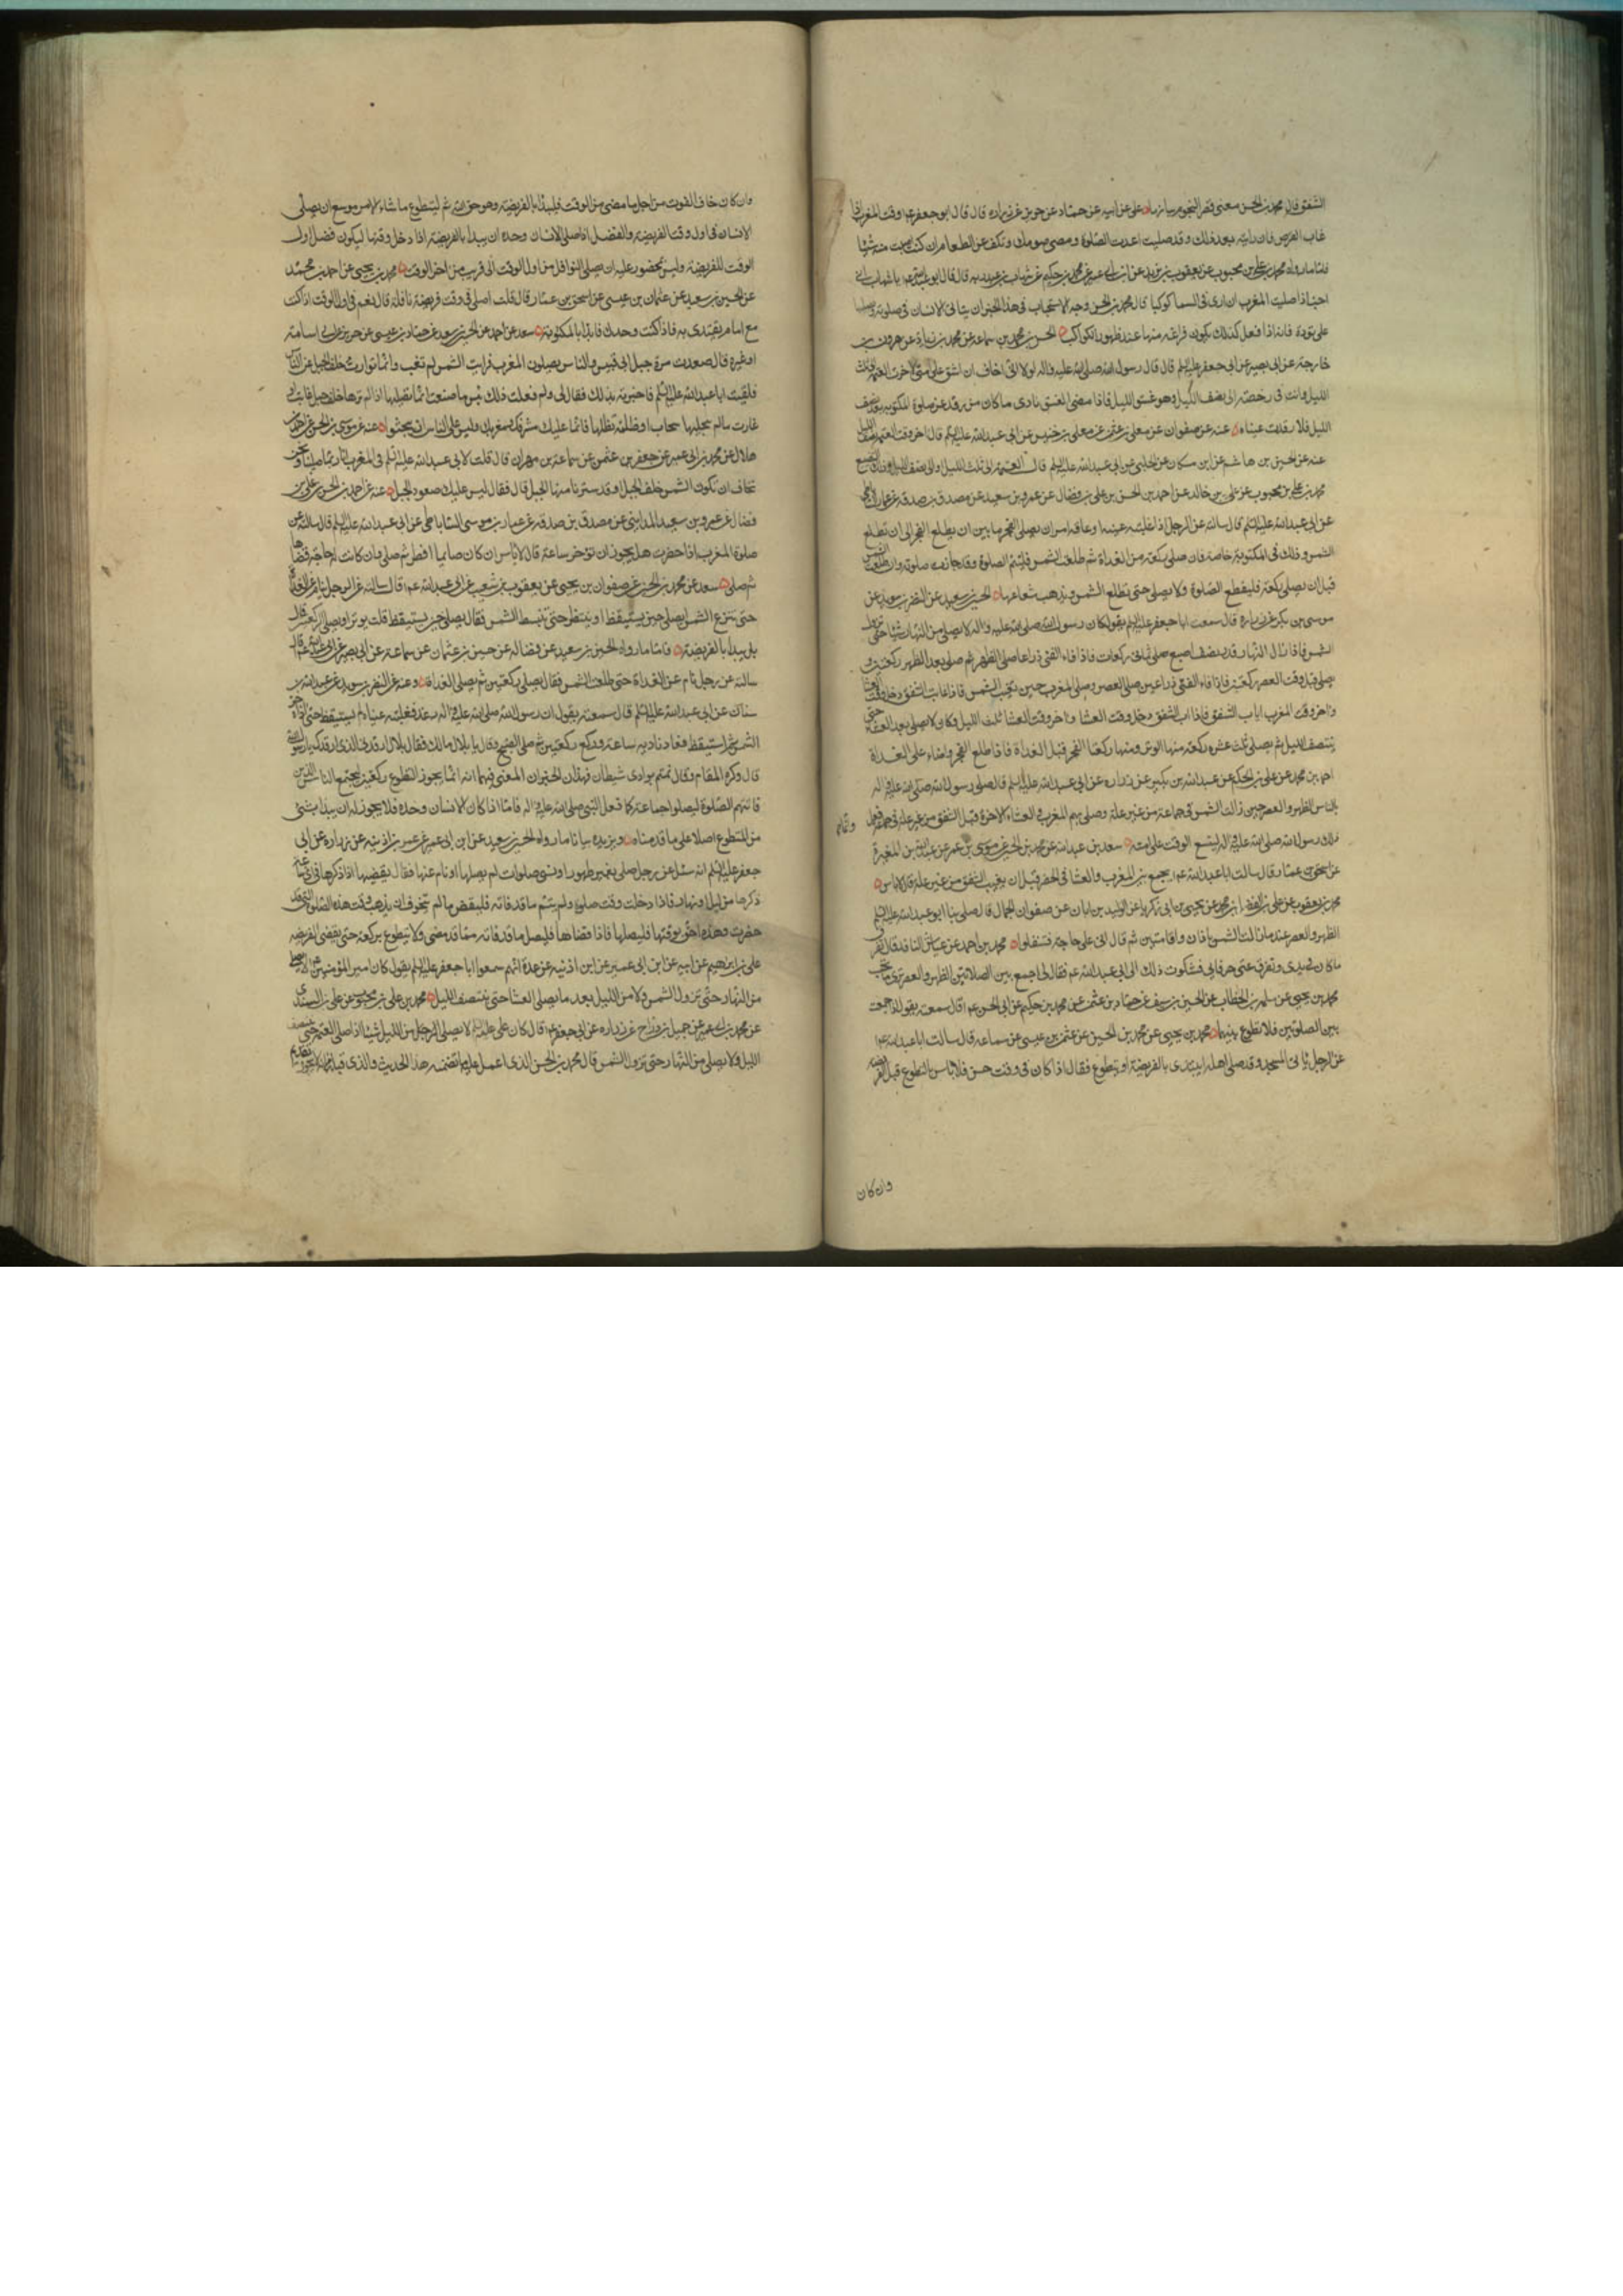 الشفق قال محمد بن الحسن معنى قصر النجوم بيانها علي عن ابيه عن حماد عن حريز عن زراره قال قال ابو جعفر عم وقت المغرب اذا
غاب القرص فان رايته بعد ذلك وقد صليت اعدت الصلوة ومضى صومك وتكف عن الطعام ان كنت اصبت منه شيئا
فاما ما رواه محمد بن علي بن محبوب عن يعقوب بن يزيد عن ابن ابي عمير عن محمد بن حكيم عن شهاب بن عبد ربه قال قال ابو عبد الله عم يا شهاب اني
احب اذا صليت المغرب ان ارى في السما كوكبا قال محمد بن الحسن وجه الاستحباب في هذا الخبر ان يتانى الانسان في صلوته ويصليها
على تؤدة فانه اذا فعل كذلك يكون فراغه منها عند ظهور الكواكب الحسن بن محمد بن سماعه عن محمد بن زياد عن هرون بن
خارجه عن ابي بصير عن ابي جعفر عليه السلم قال قال رسول الله صلى الله عليه واله لولا اني اخاف ان اشق على امتي لاخرت العتمه الى ثلث
الليل وانت في رخصة الى نصف الليل وهو غسق الليل فاذا مضى الغسق نادى ملكان من رقد عن صلوة المكتوبه بعد نصف
الليل فلا رقدت عيناه عنه عن صفوان عن معلى بن عثمن عن معلى بن خنيس عن ابي عبد الله عليه السلم قال اخر وقت العتمه نصف الليل
عنه عن الحسين بن هاشم عن ابن مسكان عن الحلبي عن ابي عبد الله عليه السلم قال العتمه الى ثلث الليل والى نصف الليل وذلك التضييع
محمد بن علي بن محبوب عن علي بن خالد عن احمد بن الحسن بن علي بن فضال عن عمرو بن سعيد عن مصدق بن صدقه عن عمار الساباطي
عن ابي عبد الله عليه السلم قال سالته عن الرجل اذا غلبته عينه او عاقه امر ان يصلي الفجر ما بين ان يطلع الفجر الى ان تطلع
الشمس وذلك في المكتوبة خاصة فان صلى ركعة من الغداة ثم طلعت الشمس فليتم الصلوة وقد جازت صلوته وان طلعت الشمس
قبل ان يصلي ركعة فليقطع الصلوة ولا يصلي حتى تطلع الشمس ويذهب شعاعها الحسين بن سعيد عن النضر بن سويد عن
موسى بن بكر عن زراره قال سمعت ابا جعفر عليه السلم يقول كان رسول الله صلى الله عليه واله لا يصلي من النهار شيئا حتى تزول
الشمس فاذا زال النهار قدر نصف اصبع صلى ثماني ركعات فاذا فاء الفئ ذراعا صلى الظهر ثم صلى بعد الظهر ركعتين و
يصلي قبل وقت العصر ركعتين فاذا فاء الفئ ذراعين صلى العصر وصلى المغرب حين تغيب الشمس فاذا غاب الشفق دخل وقت العشا
واخر وقت المغرب اياب الشفق فاذا اب الشفق دخل وقت العشا واخر وقت العشا ثلث الليل وكان لا يصلي بعد العشاء حتى
ينتصف الليل ثم يصلي ثلث عشره ركعة منها الوتر ومنها ركعتا الفجر قبل الغداة فاذا طلع الفجر واضاء صلى الغداة
احمد بن محمد عن علي بن الحكم عن عبد الله بن بكير عن زراره عن ابي عبد الله عليه السلم قال صلى رسول الله صلى الله عليه واله
بالناس الظهر والعصر حين زالت الشمس في جماعة من غير علة وصلى بهم المغرب والعشاء الاخرة قبل الشفق من غير علة في جماعة وانما فعل
ذلك رسول الله صلى الله عليه واله ليتسع الوقت على امته سعد بن عبد الله عن محمد بن الحسين عن موسى بن عمر عن عبد الله بن المغيرة
عن اسحق بن عمار قال سالت ابا عبد الله عم يجمع بين المغرب والعشا في الحضر قبل ان يغيب الشفق من غير علة قال لا باس
محمد بن يعقوب عن علي بن محمد عن الفضل بن محمد عن يحيى بن ابي زكريا عن الوليد بن ابان عن صفوان الجمال قال صلى بنا ابو عبد الله عليه السلم
الظهر والعصر عندما زالت الشمس باذان واقامتين ثم قال اني على حاجة فتنفلوا محمد بن احمد عن عباس الناقد قال تفرق
ما كان في يدي وتفرق عني حرفائي فشكوت ذلك الى ابي عبد الله عم فقال لي اجمع بين الصلاتين الظهر والعصر ترى ما تحب
محمد بن يحيى عن سلمه بن الخطاب عن الحسين بن سيف عن حماد بن عثمن عن محمد بن حكيم عن ابي الحسن عم قال سمعته يقول اذا جمعت
بين الصلوتين فلا تطوع بينهما محمد بن يحيى عن محمد بن الحسين عن عثمن بن عيسى عن سماعه قال سالت ابا عبد الله عم
عن الرجل ياتي المسجد وقد صلى اهله ايبتدي بالفريضة او يتطوع فقال اذا كان في وقت حسن فلا باس بالتطوع قبل الفريضه
وان كان
وان كان خاف الفوت من اجل ما مضى من الوقت فليبدا بالفريضه وهو حق الله ثم ليتطوع ما شاء الامر موسع ان يصلي
الانسان في اول وقت الفريضة والفضل اذا صلى الانسان وحده ان يبدا بالفريضة اذا دخل وقتها ليكون فضل اول
الوقت للفريضة وليس بمحضور عليه ان يصلي النوافل من اول الوقت الى قريب من اخر الوقت محمد بن يحيى عن احمد بن محمد
عن الحسين بن سعيد عن عثمان بن عيسى عن اسحق بن عمار قال قلت اصلي في وقت فريضة نافلة قال نعم في اول الوقت اذا كنت
مع امام يقتدى به فاذا كنت وحدك فابدا بالمكتوبة سعد عن احمد عن الحسين بن سعيد عن حماد بن عيسى عن حريز عن ابي اسامة
او غيره قال صعدت مرة جبل ابي قبيس والناس يصلون المغرب فرايت الشمس لم تغب وانما توارت خلف الجبل عن الناس
فلقيت ابا عبد الله عليه السلم فاخبرته بذلك فقال لي ولم فعلت ذلك بئس ما صنعت انما تصليها اذا لم ترها خلف جبل غابت او
غارت ما لم يتجللها سحاب او ظلمة تظلها فانما عليك مشرقك ومغربك وليس على الناس ان يبحثوا عنه عن موسى بن الحسن عن احمد بن
هلال عن محمد بن ابي عمير عن جعفر بن عثمن عن سماعة بن مهران قال قلت لابي عبد الله عليه السلم في المغرب انا ربما صلينا ونحن
نخاف ان تكون الشمس خلف الجبل او قد سترنا منها الجبل قال فقال ليس عليك صعود الجبل عنه عن احمد بن الحسن بن علي بن
فضال عن عمرو بن سعيد المدايني عن مصدق بن صدقه عن عمار بن موسى الساباطي عن ابي عبد الله عليه السلم قال سالته عن
صلوة المغرب اذا حضرت هل يجوز ان تؤخر ساعة قال لا باس ان كان صايما افطر ثم صلى وان كانت له حاجة قضاها
ثم صلى سعد عن محمد بن الحسين عن صفوان بن يحيى عن يعقوب بن شعيب عن ابي عبد الله عم قال سالته عن الرجل ينام عن الغداة
حتى تبزغ الشمس ايصلي حين يستيقظ او ينتظر حتى تنبسط الشمس فقال يصلي حين يستيقظ قلت يوتر او يصلي الركعتين قال
بل يبدا بالفريضة فاما ما رواه الحسين بن سعيد عن فضاله عن حسين بن عثمان عن سماعة عن ابي بصير عن ابي عبد الله عم قال
سالته عن رجل نام عن الغداة حتى طلعت الشمس فقال يصلي ركعتين ثم يصلي الغداة وعنه عن النضر بن سويد عن عبد الله بن
سنان عن ابي عبد الله عليه السلم قال سمعته يقول ان رسول الله صلى الله عليه واله رقد فغلبته عيناه فلم يستيقظ حتى اذاه حر
الشمس ثم استيقظ فعاد ناديه ساعة وركع ركعتين ثم صلى الصبح وقال يا بلال مالك فقال بلال ارقدني الذي ارقدك يا رسول الله
قال وكره المقام وقال نمتم بوادي شيطان فهذان الخبران المعني فيهما انه انما يجوز التطوع ركعتين ليجتمع الناس الذين
فاتتهم الصلوة ليصلوا جماعة كما فعل النبي صلى الله عليه واله فاما اذا كان الانسان وحده فلا يجوز له ان يبدا بشئ
من التطوع اصلا على ما قدمناه ويزيده بيانا ما رواه الحسين بن سعيد عن ابن ابي عمير عن عمر بن اذينه عن زراره عن ابي
جعفر عليه السلم انه سئل عن رجل صلى بغير طهور او نسي صلوات لم يصلها او نام عنها فقال يقضيها اذا ذكرها في اي ساعة
ذكرها من ليل او نهار فاذا دخلت وقت صلوة ولم يتم ما قد فاته فليقض ما لم يتخوف ان يذهب وقت هذه الصلوة التي قد
حضرت وهذه احق بوقتها فليصلها فاذا قضاها فليصل ما قد فاته مما قد مضى ولا يتطوع بركعة حتى يقضي الفريضه
علي بن ابرهيم عن ابيه عن ابن ابي عمير عن ابن اذينه عن عدة انهم سمعوا ابا جعفر عليه السلم يقول كان امير المؤمنين عم لا يصلي
من النهار حتى تزول الشمس ولا من الليل بعد ما يصلي العشا حتى ينتصف الليل محمد بن علي بن محبوب عن علي بن السندي
عن محمد بن ابي عمير عن جميل بن دراج عن زراره عن ابي جعفر عم قال كان علي عليه السلم لا يصلي من الليل شيئا اذا صلى العتمه حتى ينتصف
الليل ولا يصلي من النهار حتى تزول الشمس قال محمد بن الحسن الذي اعمل عليه ما تضمنه هذا الحديث والذي قبله